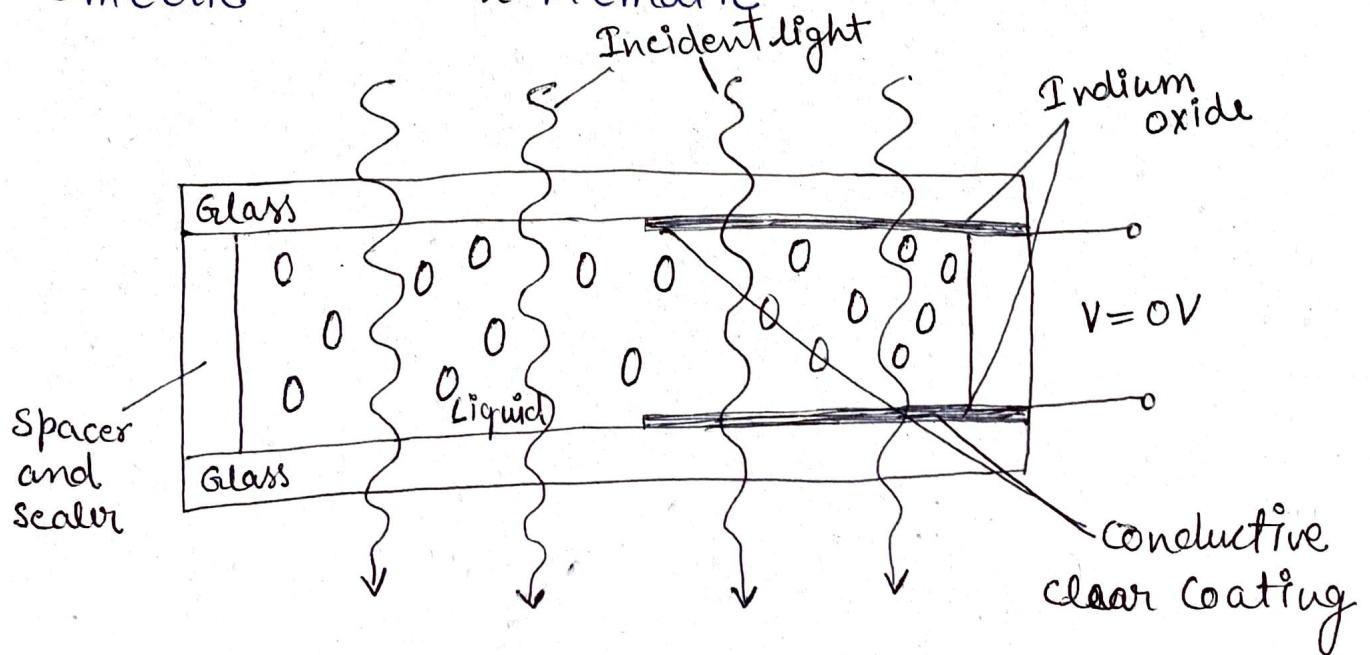 Incident light
Indium
oxide
Glass
V = 0V
Liquid
Spacer
and
Sealer
Glass
Conductive
clear Coating